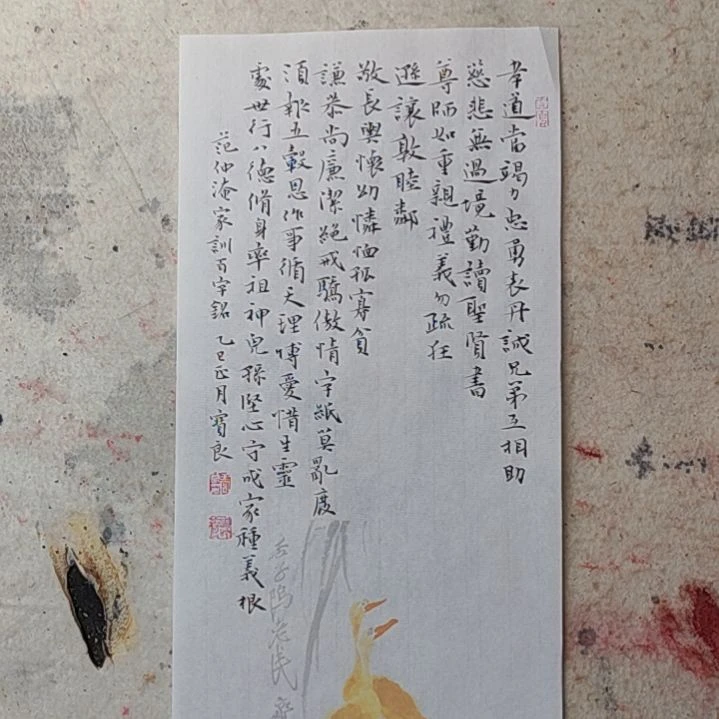 孝道當竭力忠勇表丹誠兄弟互相助
慈悲無過境勤讀聖賢書
尊師如重親禮義勿疏狂
遜讓敦睦鄰
敬長與懷幼憐恤孤寡貧
謙恭尚廉潔絕戒驕傲情字紙莫亂廢
須報五穀恩作事循天理博愛惜生靈
處世行八德脩身率祖神兒孫堅心守成家種義根
范仲淹家訓百字銘 乙巳正月寶良
杏子隖老民